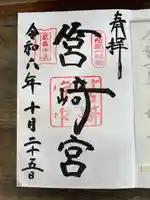 奉拝
筥崎宮
令和六年十月二十五日